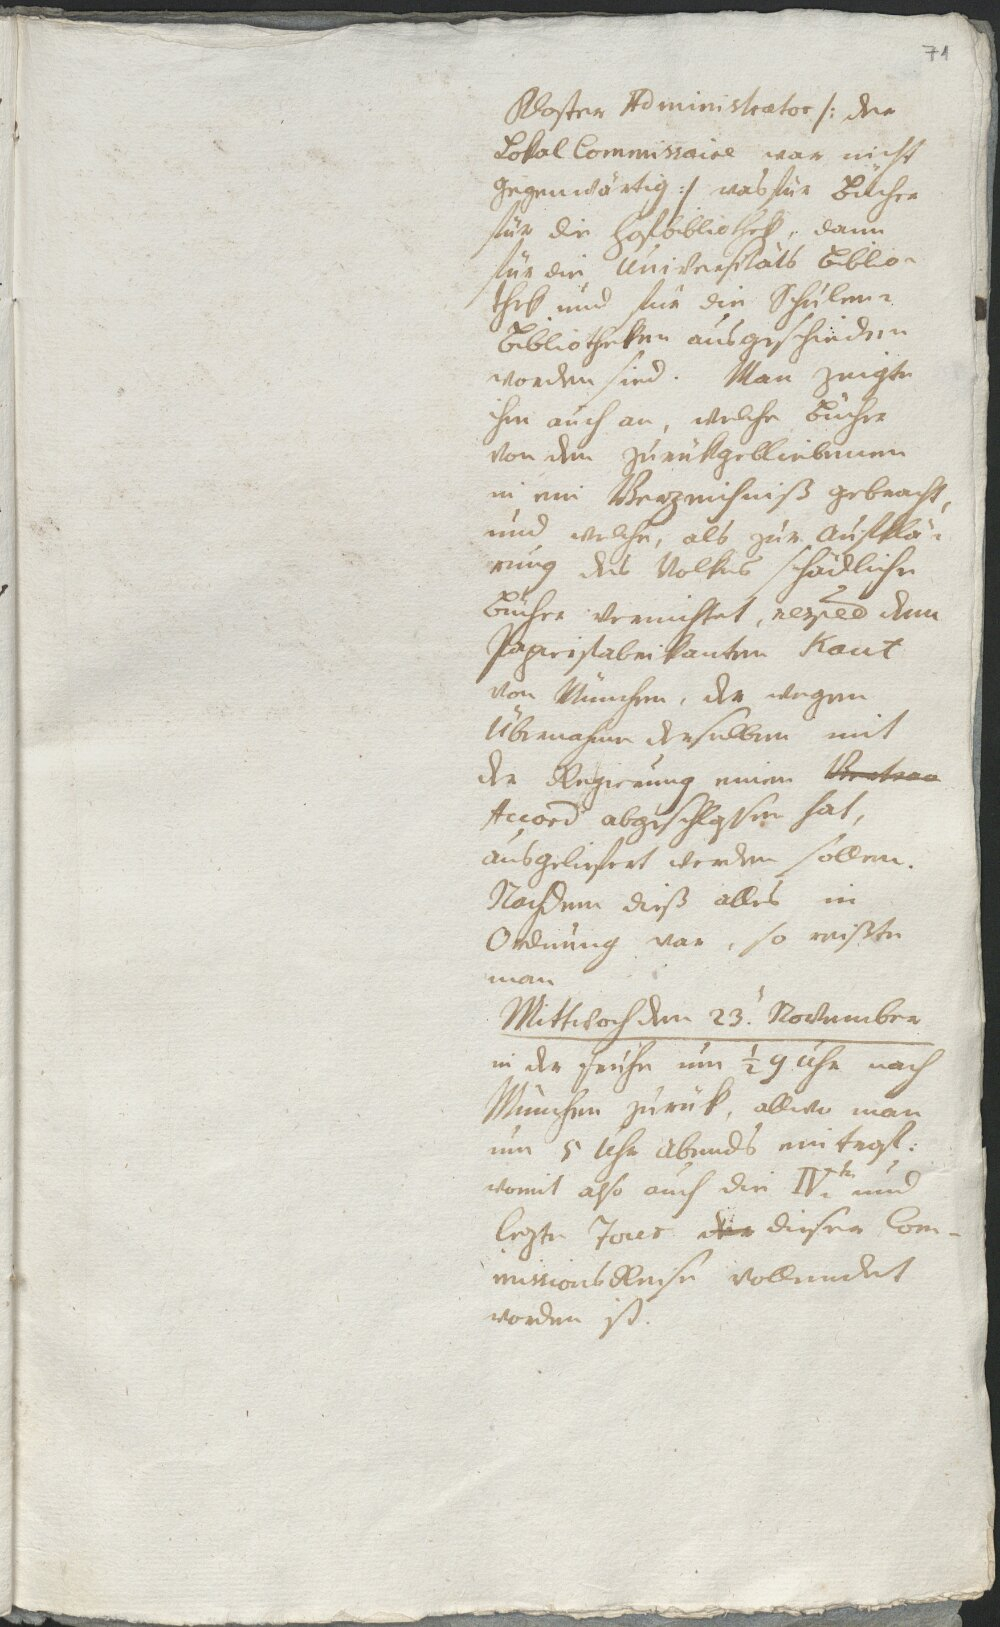 71
Kloster Administrator /: der
Lokal Commissaire war nicht
gegenwärtig :/ was für Bücher
für die Hofbibliothek, dann
für die Universitäts Biblio-
thek und für die Schulen-
Bibliotheken ausgeschieden
worden sind. Man zeigte
ihm auch an, welche Bücher
von den zurükgebliebenen
in ein Verzeichniß gebracht,
und welche, als zur Aufklä-
rung des Volkes schädliche
Bücher vernichtet, resped dem
Papierfabrikanten Kaut
von München, der wegen
Übernahme derselben mit
der Regierung einen Vertrag
Accord abgeschlossen hat,
ausgeliefert werden sollen.
Nachdem dieß alles in
Ordnung war, so reißte
man
Mittwoch den 23. November
in der Frühe um ½ 9 Uhr nach
München zurük, allwo man
um 5 Uhr Abends eintraf:
womit also auch die IV.te und
lezte Tour der dieser Com-
missions Reise vollendet
worden ist.